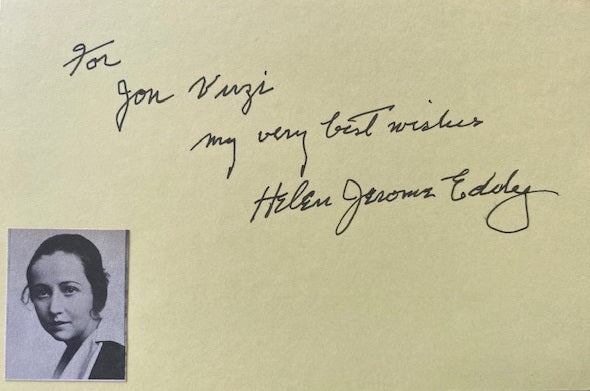 For
Jon Virzi
my very best wishes
Helen Jerome Eddy